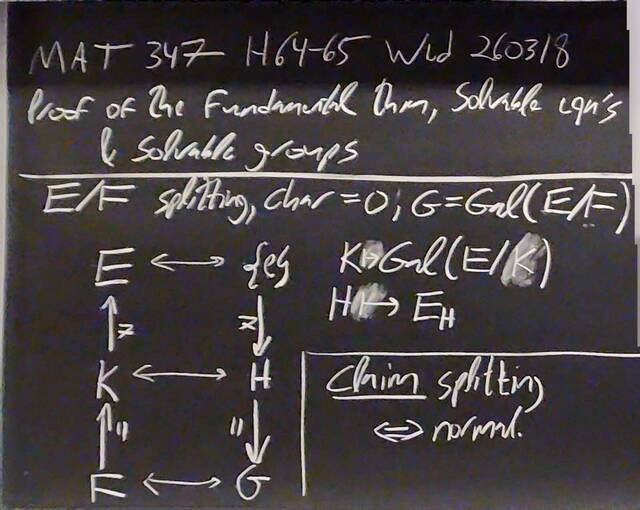 MAT 347 H64-65 Wed 260318
Proof of the Fundamental thm, Solvable eqn's
& Solvable groups
E/F splitting, char = 0; G = Gal(E/F)
E ↔ {e} K ↦ Gal(E/K)
H ↦ E_H
K ↔ H
Claim splitting
⇔ normal.
F ↔ G